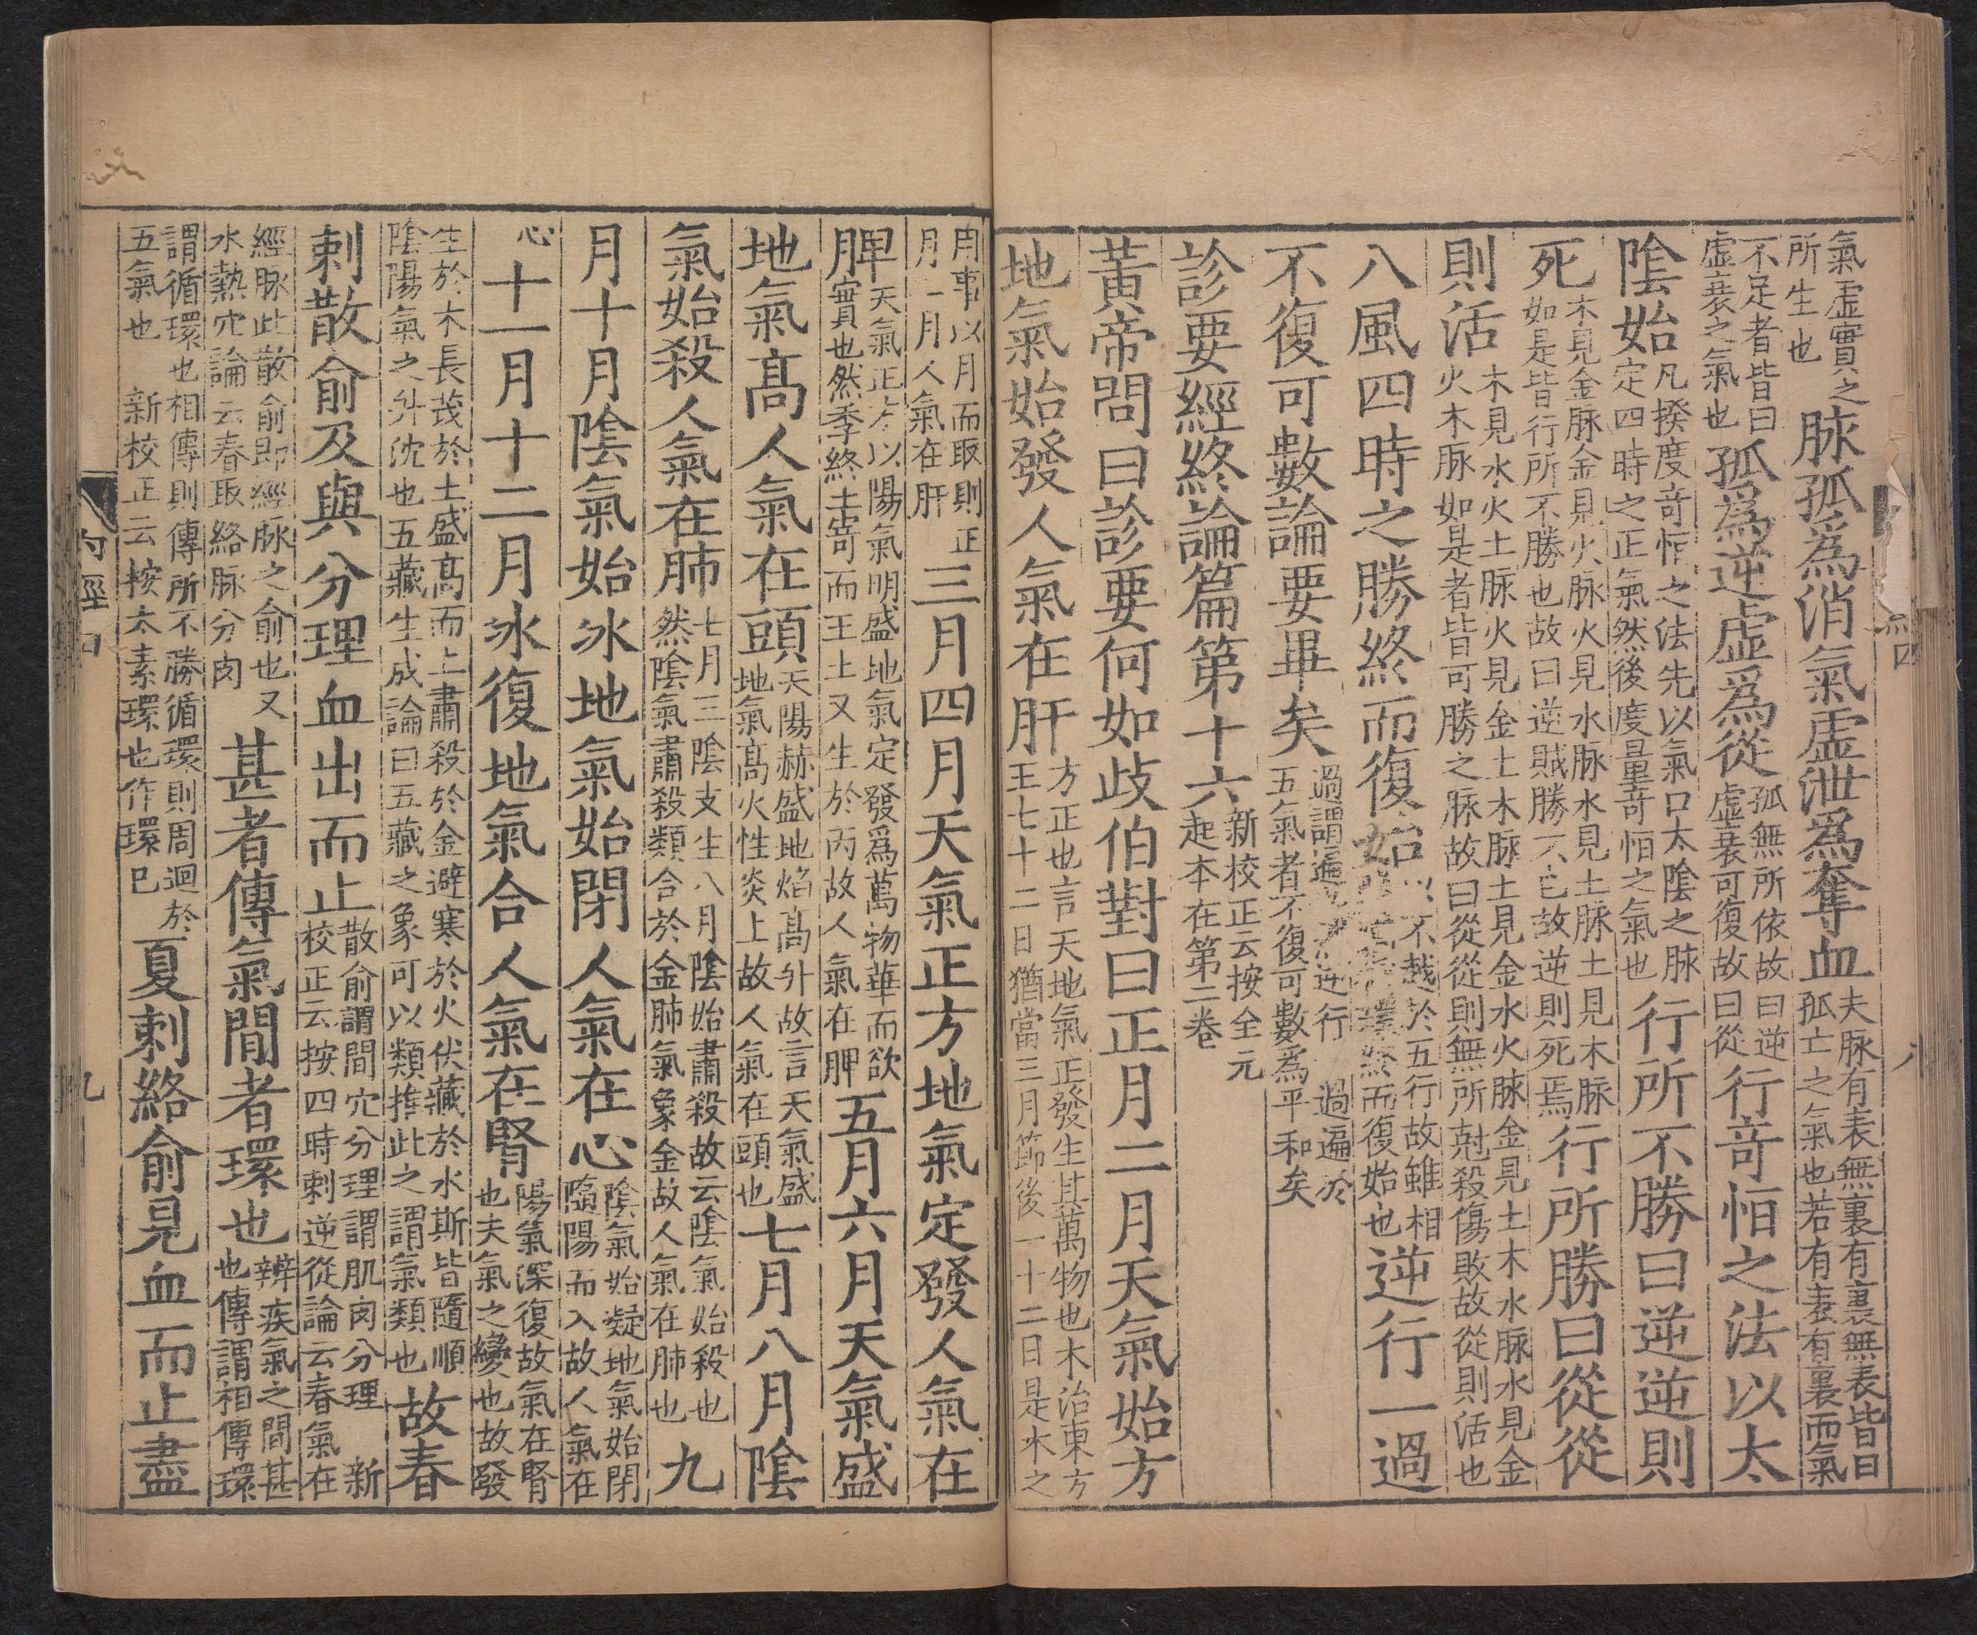 氣虛實之所生也脉孤爲消氣虛泄爲奪血夫脉有表無裏有裏無表皆曰孤亡之氣也若有表有裏而氣
不足者皆曰虛衰之氣也孤爲逆虛爲從孤無所依故曰逆虛衰可復故曰從行竒恒之法以太
陰始凡揆度竒恒之法先以氣口太陰之脉定四時之正氣然後度量竒恒之氣也行所不勝曰逆逆則
死木見金脉金見火脉火見水脉水見土脉土見木脉如是皆行所不勝也故曰逆賊勝不已故逆則死焉行所勝曰從從
則活木見水火土脉火見金土木脉土見金水火脉金見土木水脉水見金火木脉如是者皆可勝之脉故曰從從則無所尅殺傷敗故從則活也
八風四時之勝終而復始以不越於五行故雖相環終而復始也逆行一過
不復可數論要畢矣過謂遍逆行過遍於五氣者不復可數爲平和矣
診要經終論篇第十六新校正云按全元起本在第二卷
黃帝問曰診要何如歧伯對曰正月二月天氣始方
地氣始發人氣在肝方正也言天地氣正發生其萬物也木治東方王七十二日猶當三月節後一十二日是木之
用事以月而取則正月二月人氣在肝三月四月天氣正方地氣定發人氣在
脾天氣正方以陽氣明盛地氣定發爲萬物華而欲實也然季終土寄而王土又生於丙故人氣在脾五月六月天氣盛
地氣髙人氣在頭天陽赫盛地焰髙升故言天氣盛地氣髙火性炎上故人氣在頭也七月八月陰
氣始殺人氣在肺七月三陰支生八月陰始肅殺故云陰氣始殺也然陰氣肅殺類合於金肺氣象金故人氣在肺也九
月十月陰氣始冰地氣始閉人氣在心陰氣始凝地氣始閉隨陽而入故人氣在
心十一月十二月冰復地氣合人氣在腎陽氣深復故氣在腎也夫氣之變也故發
生於木長茂於土盛髙而上肅殺於金避寒於火伏藏於水斯皆隨順陰陽氣之升沈也五藏生成論曰五藏之象可以類推此之謂氣類也故春
刺散俞及與分理血出而止散俞謂間穴分理謂肌肉分理新校正云按四時刺逆從論云春氣在
經脉此散俞即經脉之俞也又水熱穴論云春取絡脉分肉甚者傳氣間者環也辨疾氣之間甚也傳謂相傳環
謂循環也相傳則傳所不勝循環則周迴於五氣也新校正云按太素環也作環已夏刺絡俞見血而止盡